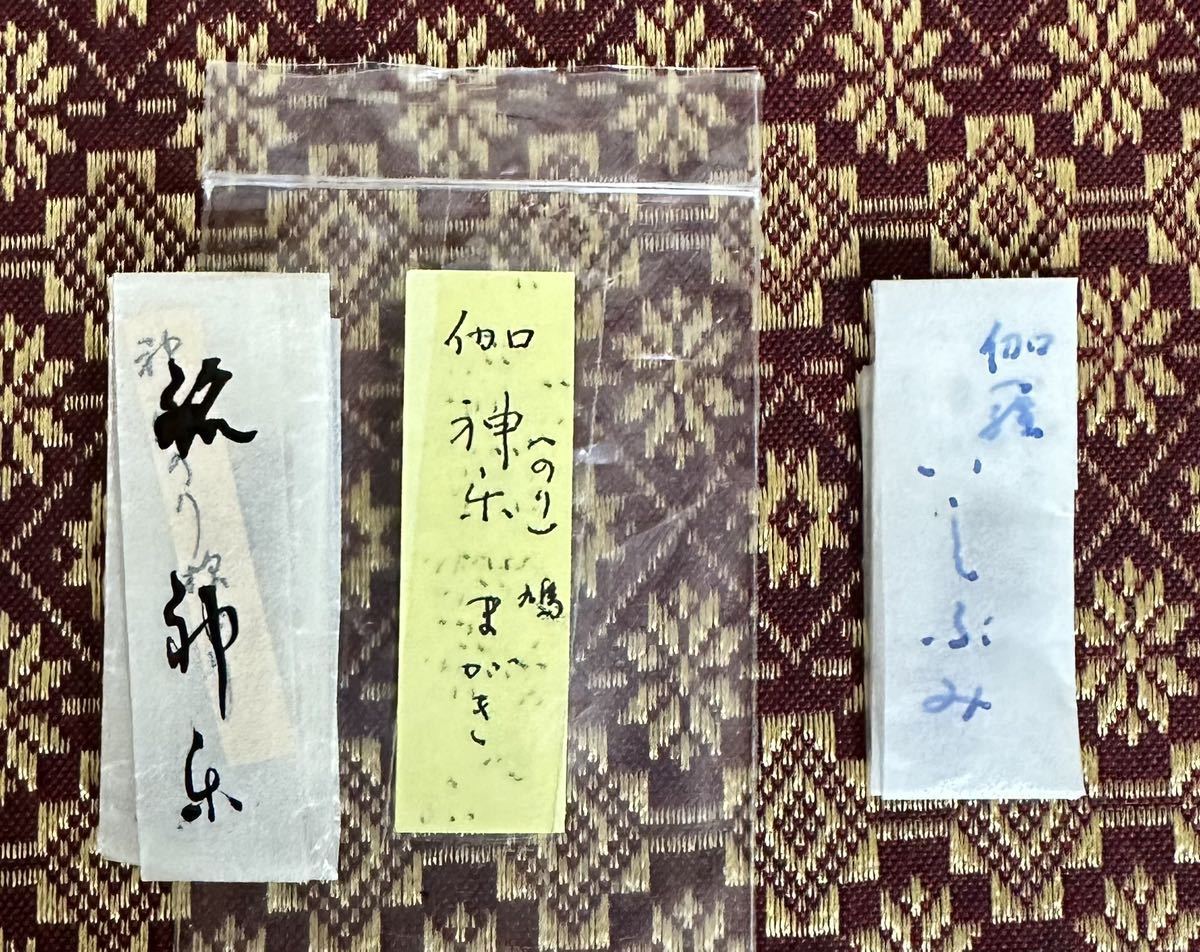 伽羅
いしぶみ
伽
(へのり)
神楽
鳩
まがき
神楽